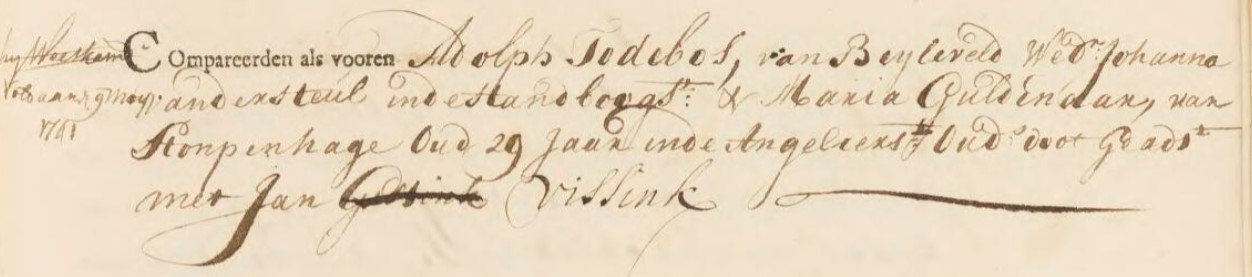 Compareerden als vooren Adolph Todebos, van Beyleveld Wed:r Johanna
andersteul inde standboogst: & Maria Guldenaar, van
Konpenhage Oud 29 Jaar inde Angelierst: Oud:s doot Geadst
met Jan Vissink
1761